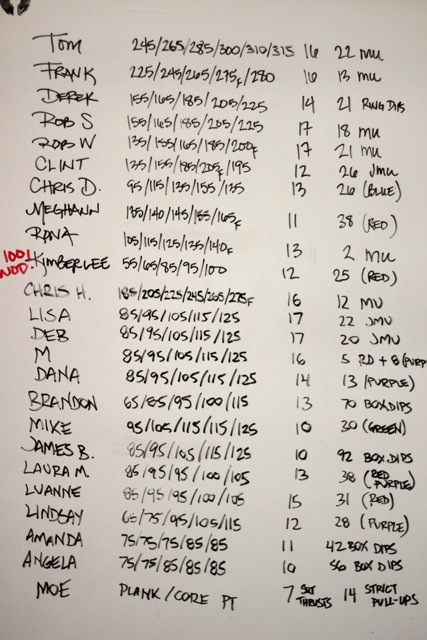 TOM 245/265/285/300/310/315 16 22 MU
FRANK 225/245/265/275F/280 16 13 MU
DEREK 155/165/185/205/225 14 21 RING DIPS
ROB S 155/165/185/205/225 17 18 MU
ROB W 135/155/165/185/200F 17 21 MU
CLINT 135/155/185/205F/195 12 26 JMU
CHRIS D. 95/115/135/155/135 13 26 (BLUE)
MEGHANN 135/140/145/155/165F 11 38 (RED)
RONA 105/115/125/135/140F 13 2 MU
100th WOD! KIMBERLEE 55/65/85/95/100 12 25 (RED)
CHRIS H. 185/205/225/245/265/275F 16 12 MU
LISA 85/95/105/115/125 17 22 JMU
DEB 85/95/105/115/125 17 20 JMU
M 85/95/105/115/125 16 5 RD + 8 (PURP
DANA 85/95/105/115/125 14 13 (PURPLE)
BRANDON 65/85/95/100/115 13 70 BOX DIPS
MIKE 95/105/115/115/125 10 30 (GREEN)
JAMES B. 85/95/105/115/125 10 92 BOX DIPS
LAURA M. 85/95/95/100/105 13 38 (RED PURPLE)
LUANNE 85/95/95/100/105 15 31 (RED)
LINDSAY 65/75/95/105/115 12 28 (PURPLE)
AMANDA 75/75/75/85/85 11 42 BOX DIPS
ANGELA 75/75/85/85/85 10 56 BOX DIPS
MOE PLANK/CORE PT 7 SOT THRUSTS 14 STRICT PULL-UPS